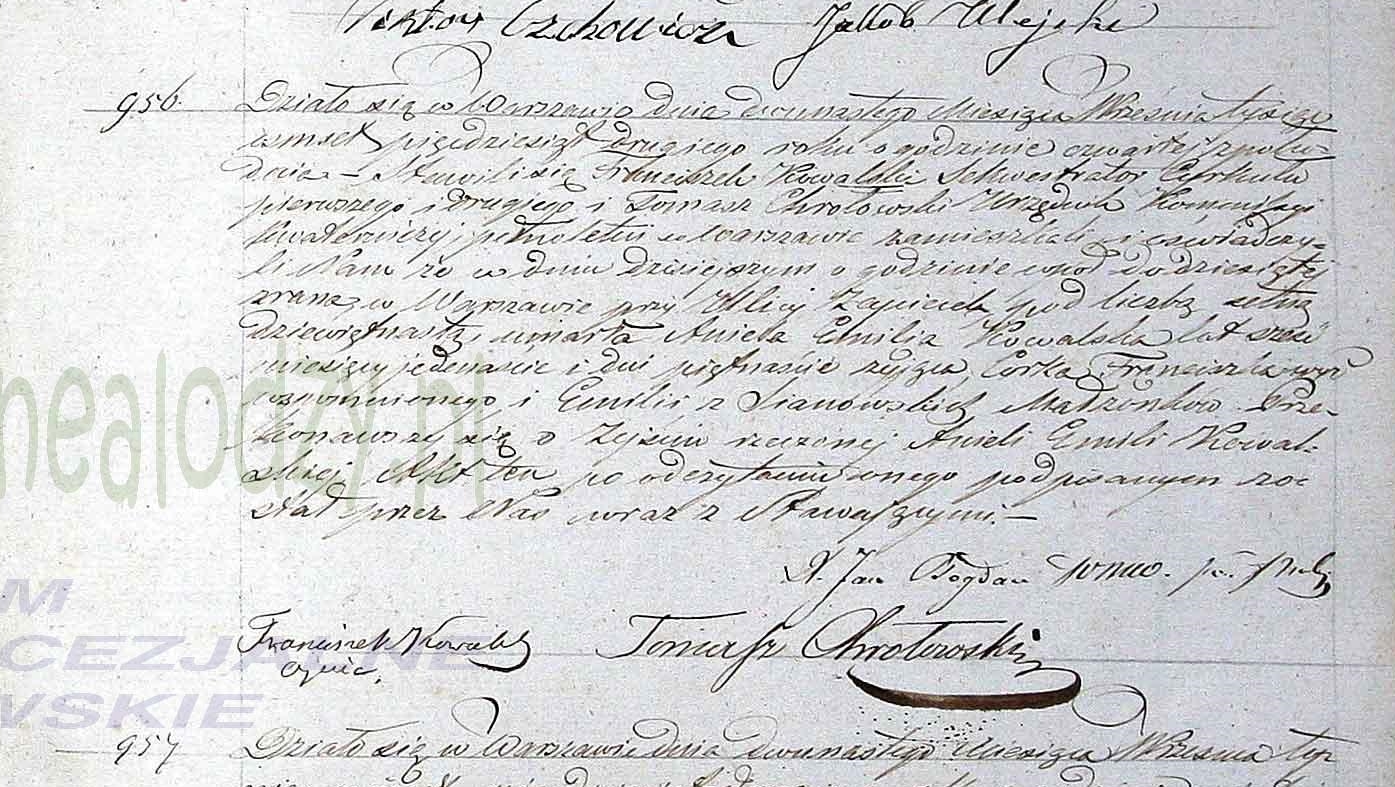 Wiktor Czechowicz Jakób
956. Działo się w Warszawie dnia dwunastego Miesiąca Września tysiąc
osmset pięćdziesiąt drugiego roku o godzinie czwartej z połu-
dnia – Stawili się Franciszek Kowalski Sekwestrator Cyrkułu
pierwszego i drugiego i Tomasz Chrołowski Urzędnik Kommissyi
pełnoletni w Warszawie zamieszkali, i oświadczy-
li Nam że w dniu dzisiejszym o godzinie wpół do dziesiątej
zrana, w Warszawie przy Ulicy Zapiecek pod liczbą setną
dziewiętnastą umarła Aniela Emilia Kowalska lat sześć
miesięcy jedenaście i dni piętnaście żyjąca, Córka Franciszka wyż
wspomnionego i Emilii z Sianowskich Małżonków. Prze-
konawszy się o Zejściu rzeczonej Anieli Emilii Kowal-
skiej Akt ten po odczytaniu onego podpisanym zo-
stał przez Nas wraz z Stawającymi. –
X. Jan Bogdan
Franciszek Kowalski Tomasz Chrołowski
Ojciec,
957 Działo się w Warszawie dnia dwunastego Miesiąca Września tyz
nealodzy.pl
M
CEZJALNE
WSKIE